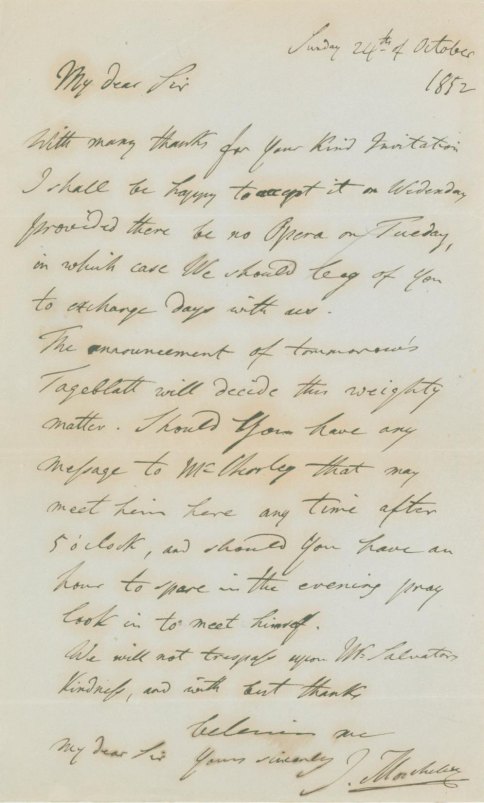 Sunday 24th of October
1852
My dear Sir
With many thanks for your Kind Invitation
I shall be happy to accept it on Widensday
provided there be no Opera on Tuesday,
in which case We should beg of you
to exchange days with us.
The announcement of tommorow's
Tageblatt will decide this weighty
matter. Should You have any
message to Mr Chorley that may
meet him here any time after
5 o'clock, and should You have an
hour to spare in the evening pray
look in to meet himself.
We will not trespass upon Mr Salvators
Kindness, and with best thanks
believe me
My dear Sir Yours sincerely
J. Moscheles